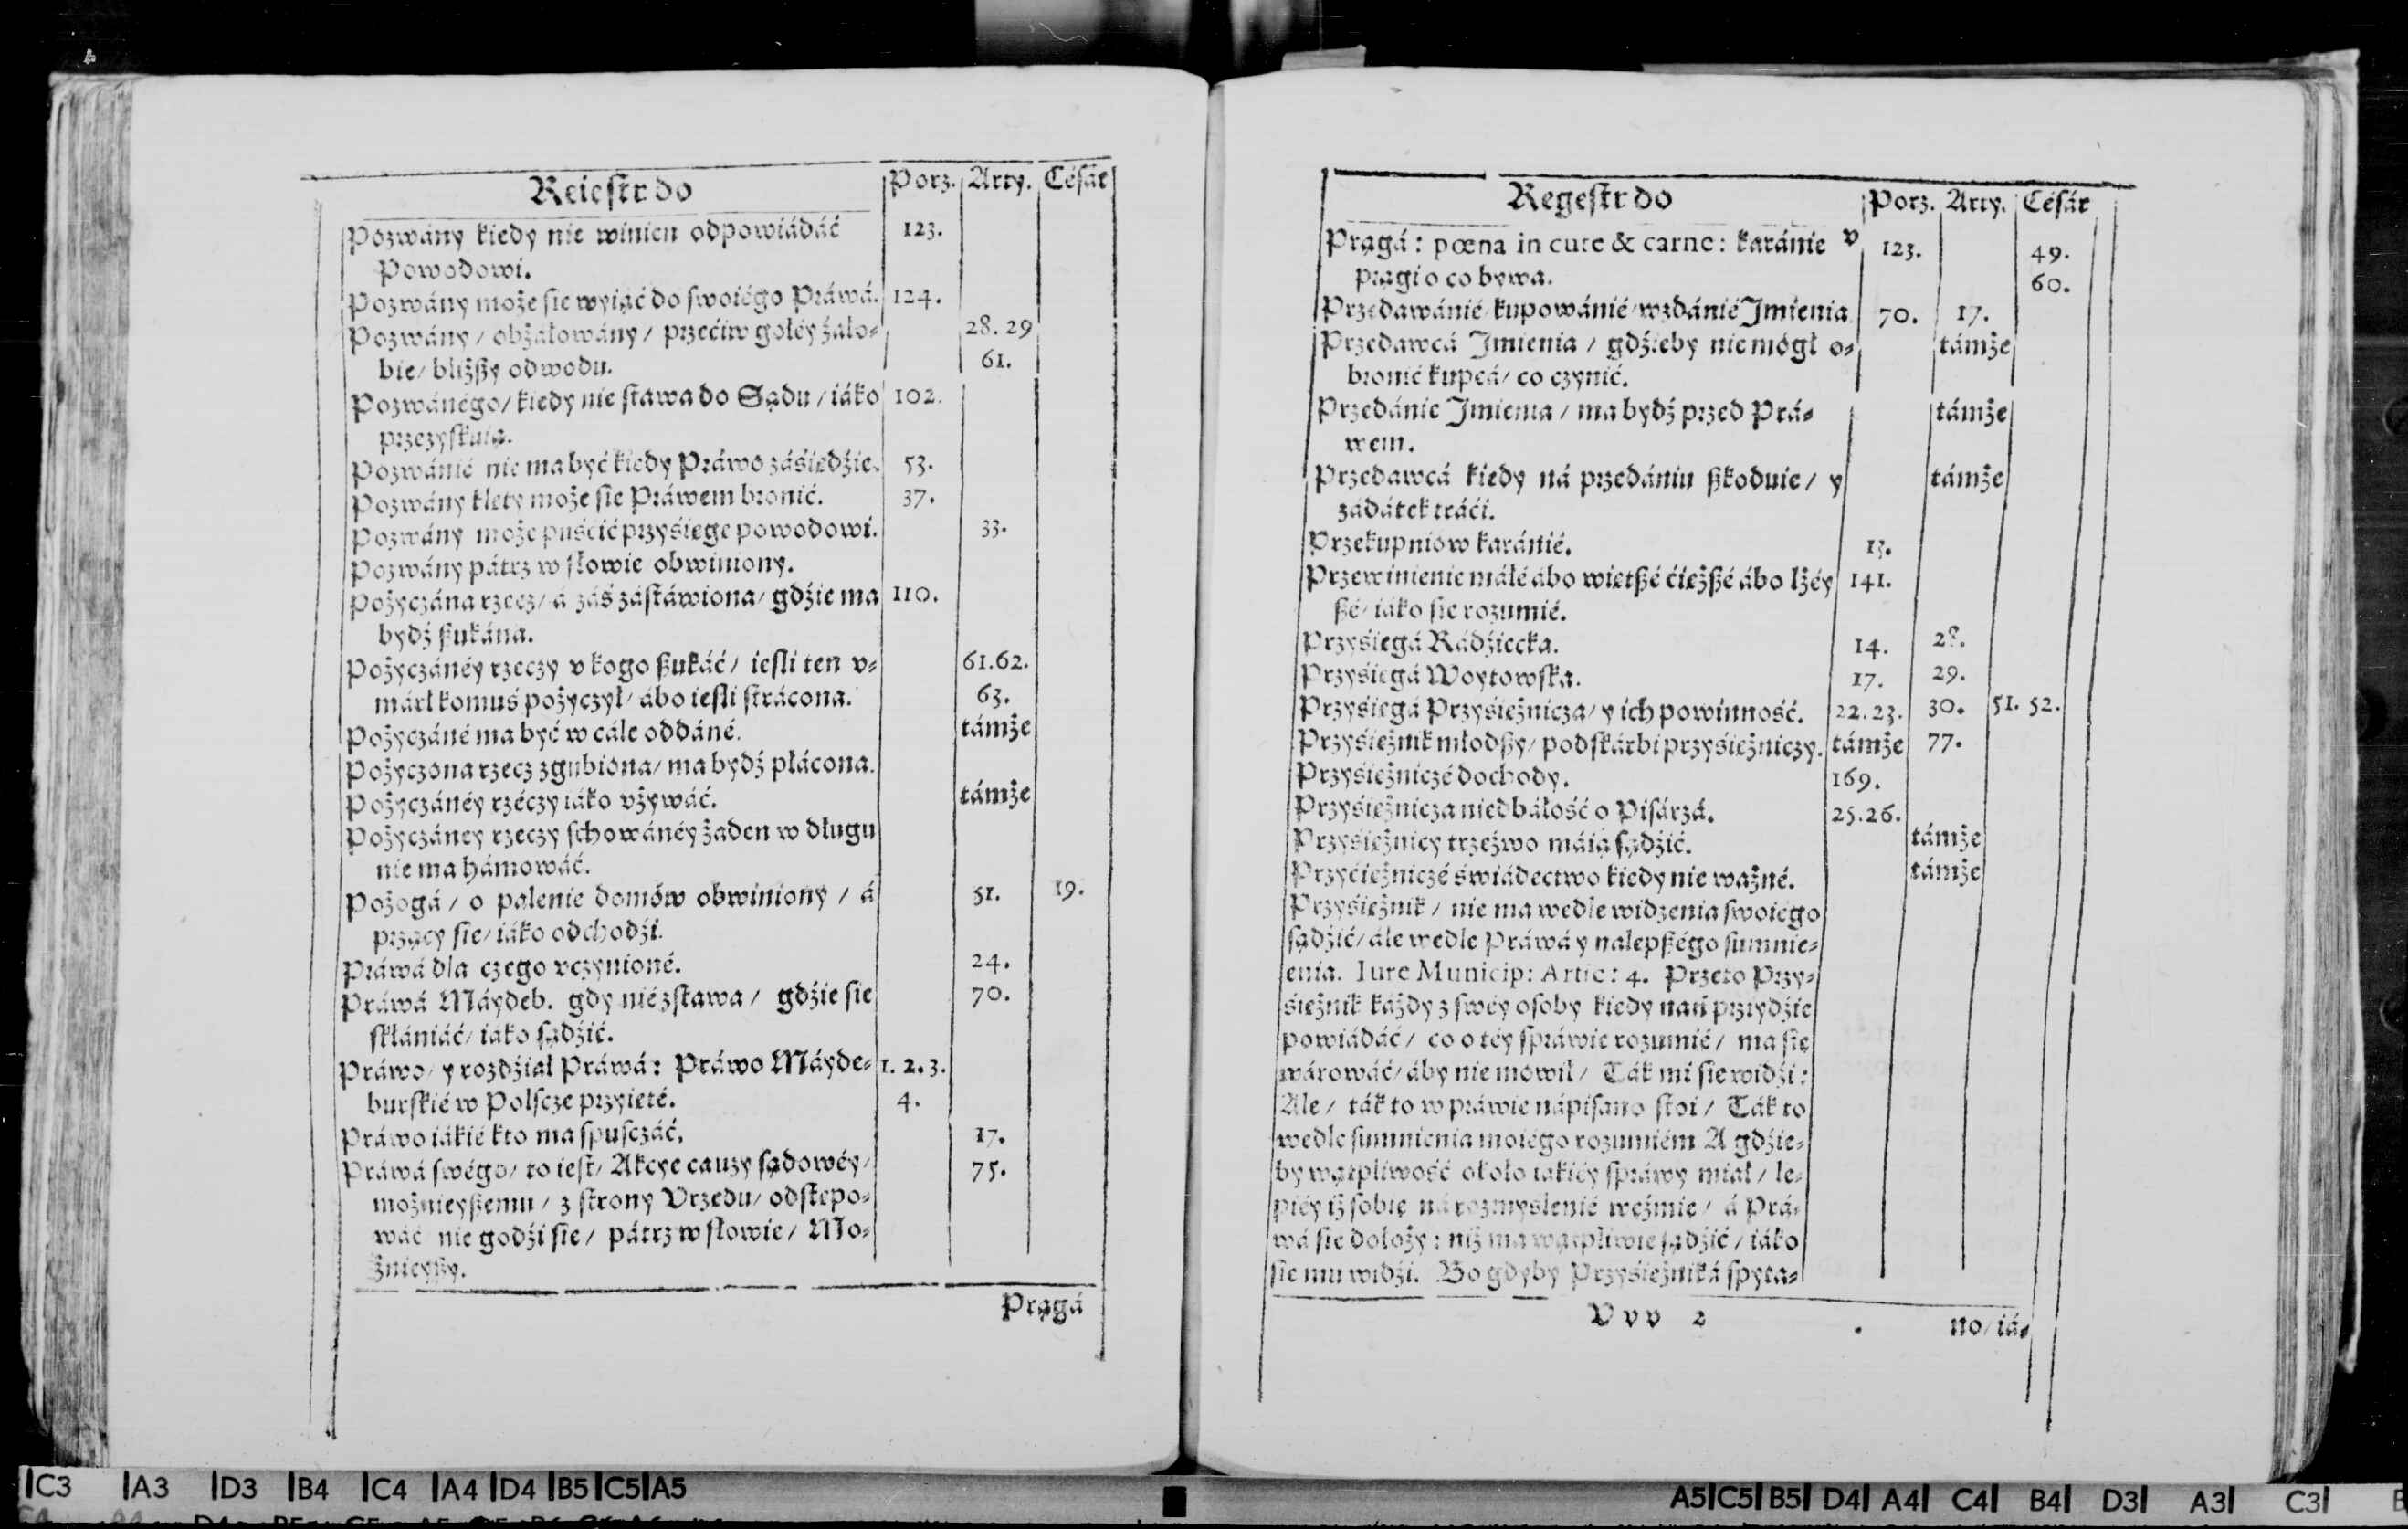 Reiestr do Porz. Arty. Césár
Pozwány kiedy nie winien odpowiádáć 123.
Powodowi.
Pozwány może sie wyiąć do swoiégo Práwá. 124.
Pozwány / obżáłowány / przećiw gołéy żáło- 28. 29
bie / bliższy odwodu. 61.
Pozwánégo / kiedy nie stawa do Sądu / iáko 102.
przezyskuią.
Pozwánié nie ma być kiedy Práwo záśiędźie. 53.
Pozwány klęty może sie Práwem bronić. 37.
Pozwány może puśćić przyśięgę powodowi. 33.
Pozwány pátrz w słowie obwiniony.
Pożyczána rzecz / á záś zástáwiona / gdźie ma 110.
bydź szukána.
Pożyczánéy rzeczy v kogo szukáć / iesli ten v- 61.62.
márł komuś pożyczył / ábo iesli strácona. 63.
Pożyczáné ma być w cále oddáné. támże
Pożyczona rzecz zgubiona / ma bydź płácona.
Pożyczánéy rzéczy iáko vżywáć. támże
Pożyczáney rzeczy schowánéy żaden w długu
nie ma hámowáć.
Pożogá / o palenie domów obwiniony / á 51. 19.
przący sie / iáko odchodźi.
Práwá dla czego vczynioné. 24.
Práwá Máydeb. gdy niézstawa / gdźie sie 70.
skłániáć / iáko sądźić.
Práwo / y rozdźiał Práwá: Práwo Máyde- 1. 2. 3.
burskié w Polscze przyięté. 4.
Práwo iákié kto ma spusczáć. 17.
Práwá swégo / to iest / Akcye cauzy sądowéy / 75.
możnieyszemu / z strony Vrzędu / odstępo-
wáć nie godźi sie / pátrz w słowie / Mo-
żnieyszy.
Prągá
Regestr do Porz. Arty. Césár
Prągá: pœna in cute & carne: karánie v 123. 49.
prągi o co bywa. 60.
Przedawánié / kupowánié / wzdánié Jmienia 70. 17.
Przedawcá Jmienia / gdźieby nie mógł o- támże
bronić kupcá / co czynić.
Przedánie Jmienia / ma bydź przed Prá- támże
wem.
Przedawcá kiedy ná przedániu szkoduie / y támże
zadátek tráći.
Przekupniów karánié. 13.
Przewinienie máłé ábo więtszé ćięższé ábo lżéy 141.
szé / iáko sie rozumié.
Przyśięgá Rádźiecka. 14. 28.
Przyśięgá Woytowska. 17. 29.
Przyśięgá Przyśiężnicza / y ich powinność. 22.23. 30. 51. 52.
Przyśiężnik młodszy / podskárbi przyśiężniczy. támże 77.
Przyśiężniczé dochody. 169.
Przyśiężnicza niedbáłość o Pisárzá. 25.26.
Przyśiężnicy trzeźwo máią sądźić. támże
Przyćiężniczé świádectwo kiedy nie ważné. támże
Przyśiężnik / nie ma wedle widzenia swoiégo
sądźić / ále wedle Práwá y nalepszégo sumnie-
enia. Iure Municip: Artic: 4. Przeto Przy-
śiężnik káżdy z swéy osoby kiedy nań przydźie
powiádáć / co o téy spráwie rozumié / ma się
wárowáć / áby nie mówił / Ták mi sie widźi:
Ale / ták to w práwie nápisano stoi / Ták to
wedle sumnienia moiégo rozumiém A gdźie-
by wątpliwość około iakiéy spráwy miał / le-
piéy iż sobię ná rozmyslenié weźmie / á Prá-
wá sie dołoży: niż ma wątpliwie sądźić / iáko
sie mu widźi. Bo gdyby Przyśiężniká spyta-
V v v 2 no / iá-
C3 A3 D3 B4 C4 A4 D4 B5 C5 A5
A5 C5 B5 D4 A4 C4 B4 D3 A3 C3